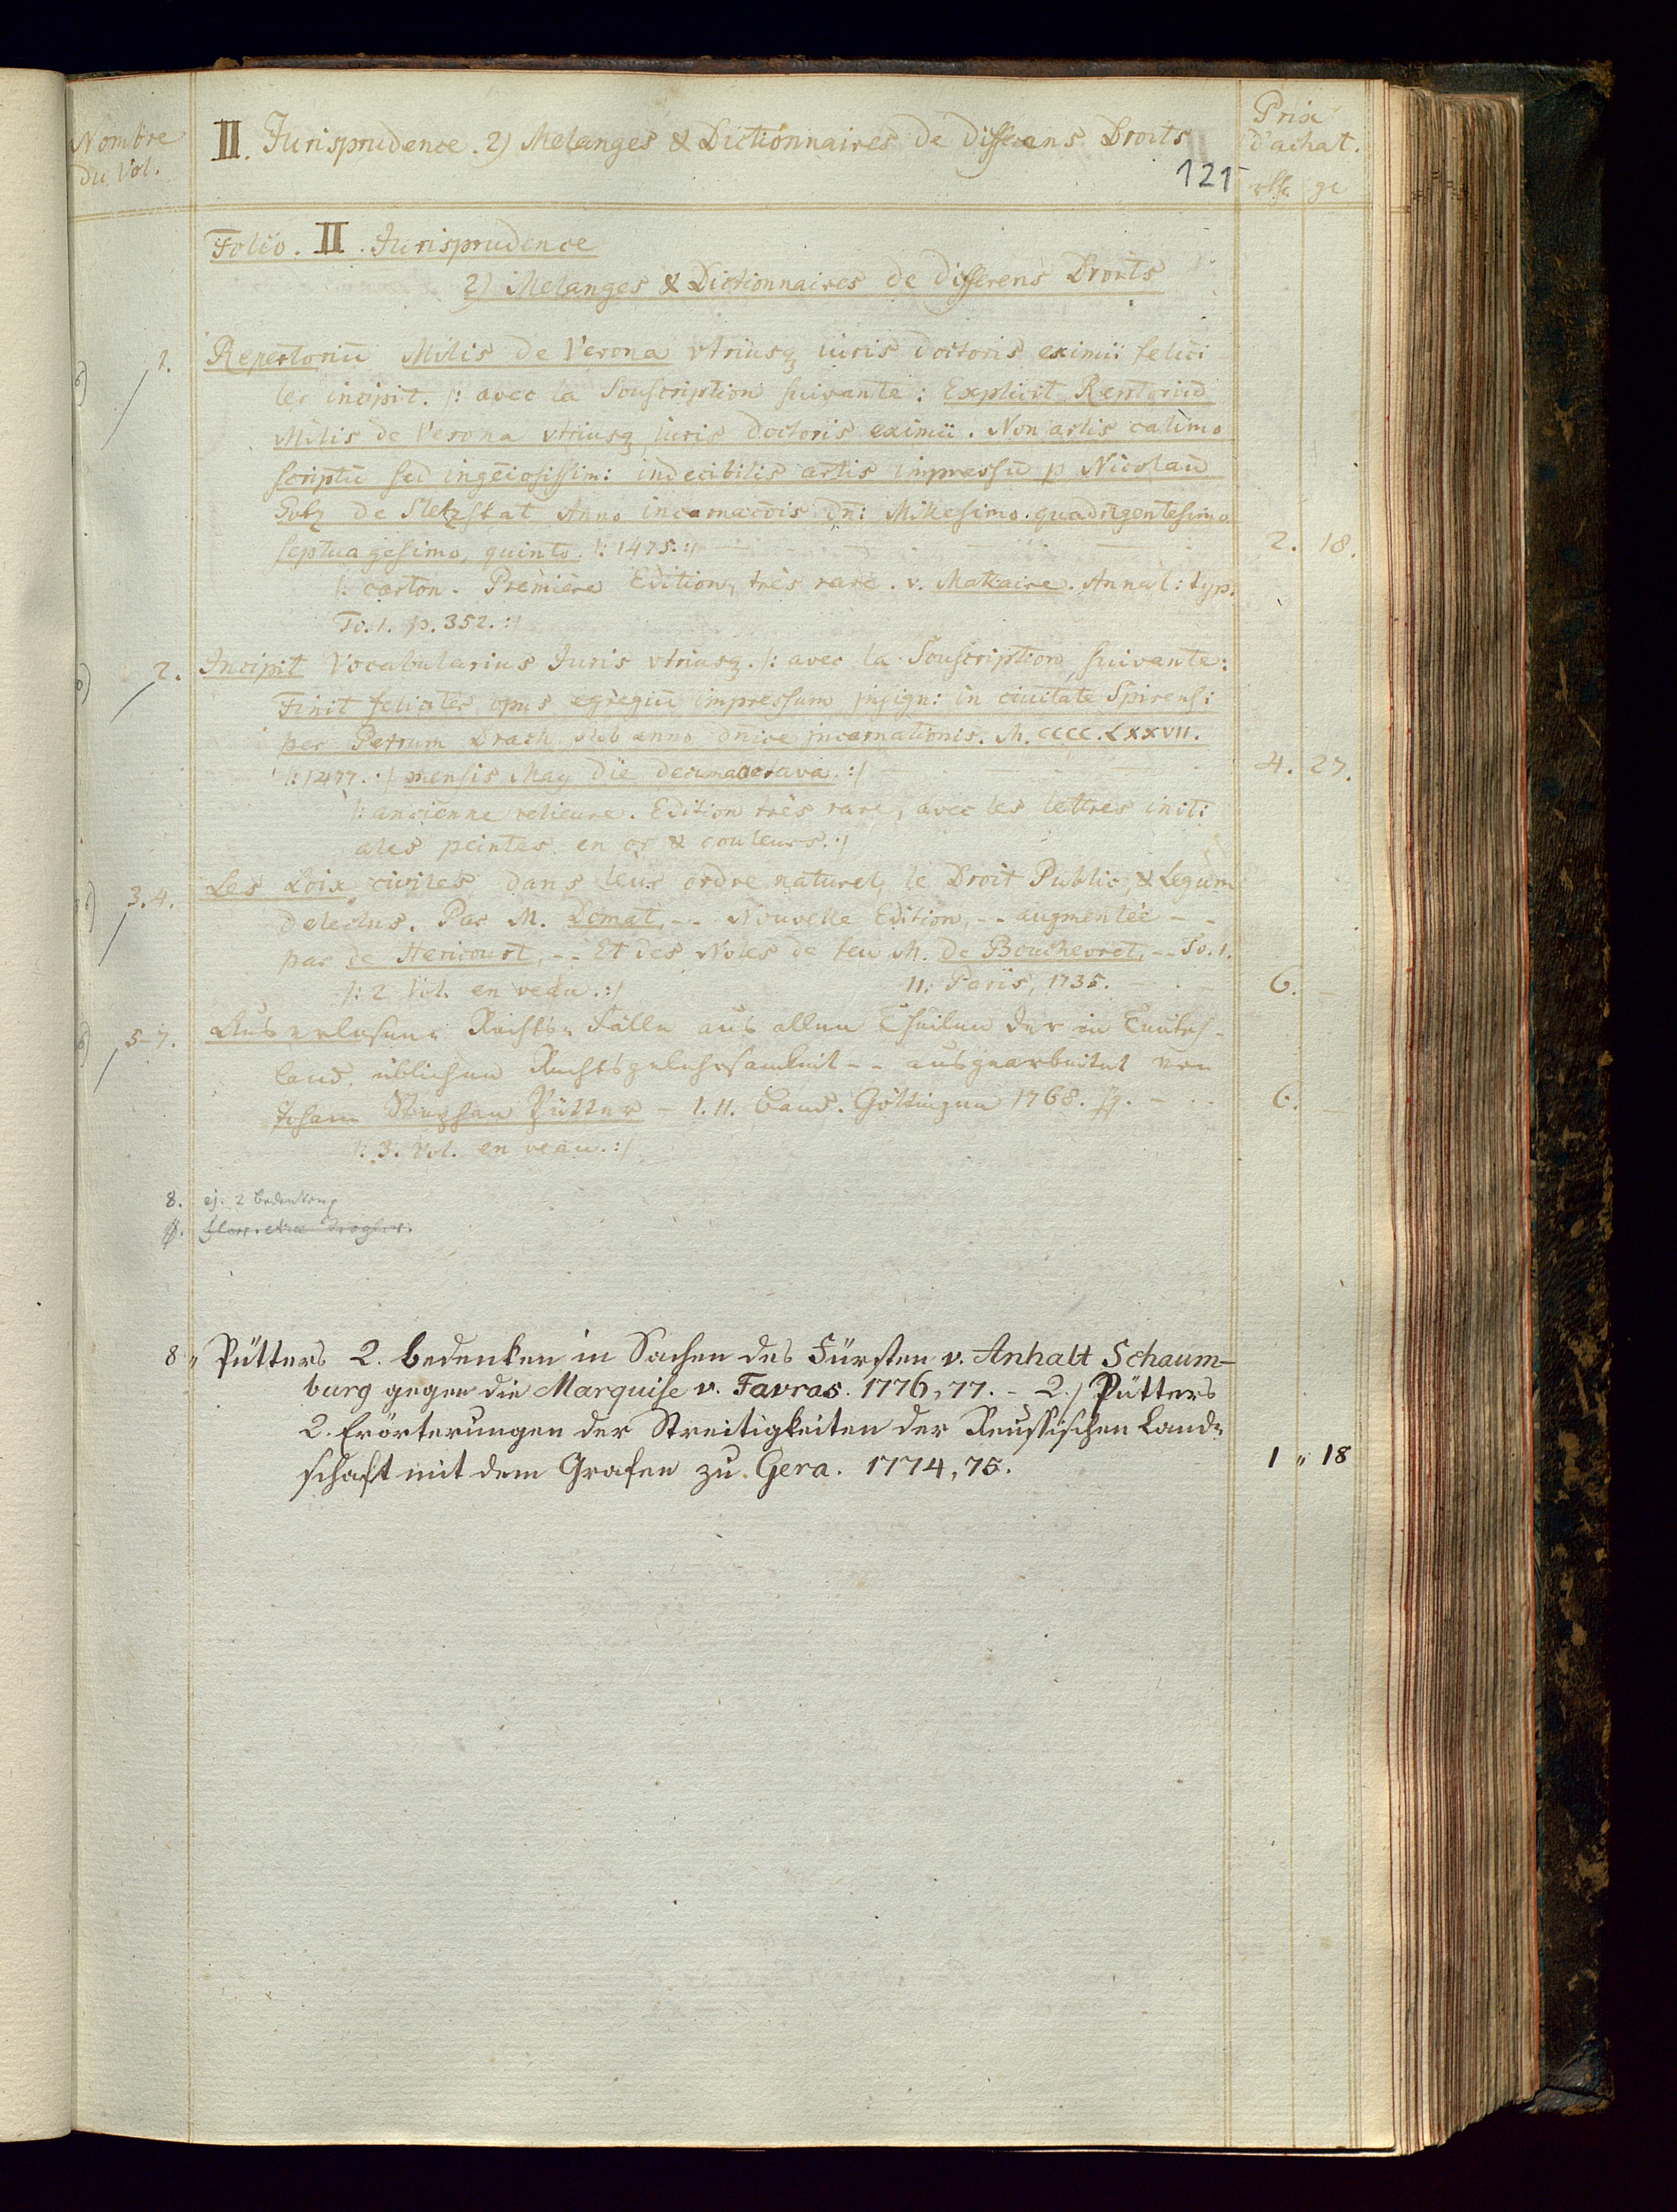 Nombre
du Vol.
II. Jurisprudence. 2) Melanges & Dictionnaires de differens Droits
Prix
d'achat.
121
rthr. gr
Folio. II. Jurisprudence
2) Melanges & Dictionnaires de differens Droits
1. Repertoriū Milis de Verona vtriusq iuris doctoris eximii felici
ter incipit. /: avec la Souscription suivante: Explicit Rertoriū
Milis de Verona vtriusq iuris doctoris eximii. Non artis calimo
scriptū sed ingeiosissim: indecibilis artis impressū p Nicolaū
Gotz de Sletzstat Anno incarnacōis dn̄: Millesimo quadrigentesimo
septuagesimo, quinto. /: 1475. :/ 2. 18.
/: carton. Première Edition, très rare. v. Mattaire. Annal: typ.
To. 1. p. 352. :/
2. Incipit Vocabularius Juris vtriusq. /: avec la Souscription suivante:
Finit feliciter opus egregiū impressum insign: in ciuitate Spirensi
per Petrum Drach sub anno dnice incarnationis. M. CCCC. LXXVII.
/: 1477. :/ mensis May die decimaoctava. :/ 4. 27.
/: ancienne relieure. Edition très rare, avec les lettres initi:
ales peintes en or & couleurs. :/
3.4. Les Loix civiles dans leur ordre naturel, le Droit Public, & Legum
delectus. Par M. Domat, -- Nouvelle Edition, -- augmentée --
par de Hericourt, -- Et des Notes de feu M. de Bouchevret, -- To. 1.
/: 2 Vol. en veau. :/ 11. Paris, 1735. 6. —
5-7. Auserlesene Rechts-Fälle aus allen Theilen der in Teutsch-
land üblichen Rechtsgelehrsamkeit -- ausgearbeitet von
Johann Stephan Pütter - 1. 11. Band. Göttingen 1768. 6. —
/: 3. Vol. en veau. :/
8. ej. 2 Bedenken
8 " Pütters 2. Bedenken in Sachen des Fürsten v. Anhalt Schaum-
burg gegen die Marquise v. Favras. 1776, 77. - 2.) Pütters
2. Erörterungen der Streitigkeiten der Reussischen Land-
schaft mit dem Grafen zu Gera. 1774, 75. 1 " 18